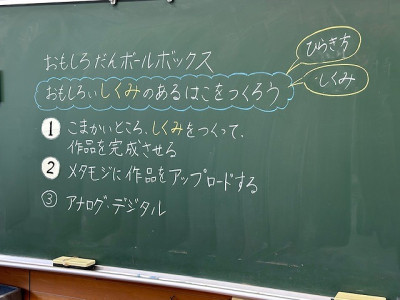 おもしろだんボールボックス
おもしろいしくみのあるはこをつくろう
ひらき方
しくみ
1 こまかいところ、しくみをつくって、
作品を完成させる
2 メタモジに作品をアップロードする
③ アナログ・デジタル